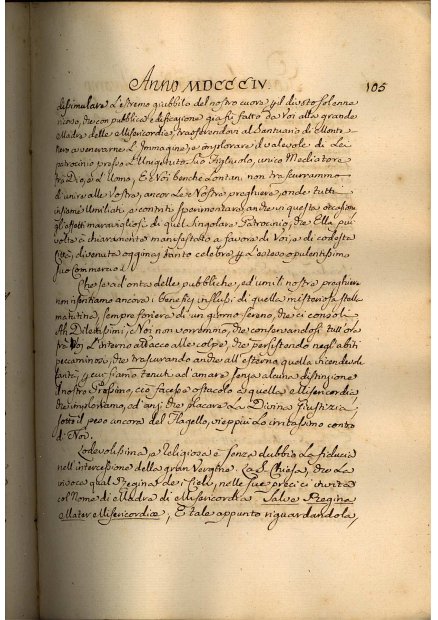 Anno MDCCCIV 105
dissimulare l'estremo giubbilo del nostro cuore pel divoto solenne
che con pubblica edificazione già fù fatto da Voi alla grande
Madre delle Misericordie, trasferendovi al Santuario di Monte
Nero a venerarne l'Immagine, e implorare il valevole di Lei
patrocinio presso l'Unigenito Suo Figliuolo, unico Mediatore
tra Dio, e l'Uomo. E Noi benchè lontani, non trascurammo
d'unire alle Vostre, ancor le Nostre preghiere, onde tutti
insieme umiliati, e contriti sperimentare anche in questa occasione
gli effetti maravigliosi di quel singolare Patrocinio, che Ella più
volte à chiaramente manifestato a favore di Voi, e di codesta
Città, divenuta oggimai tanto celebre pel esteso opulentissimo
suo commercio.
Che se ad onta delle pubbliche, ed umili nostre preghiere
non sentiamo ancora i benefici influssi di quella misteriosa stella
mattutina, sempre foriera di un giorno sereno, che ci consoli
Ah Dilettissimi; Noi non vorremmo, che conservandosi tutt'ora
tra Voi l'interno attacco alle colpe, che persistendo negli abiti
peccaminosi, che trascurando anche all'esterno quella vicendevole
carità, cui siamo tenuti ad amare senza alcuna distinzione
il nostro Prossimo, ciò facesse ostacolo a quella Misericordia
che imploriamo, ed anzi che placare la Divina Giustizia
sotto il peso ancora del Flagello, vieppiù la irritassimo contro
di Noi.
Lodevolissima, e Religiosa è senza dubbio la fiducia
nell'intercessione della gran Vergine. La S. Chiesa, che La
invoca qual Regina de' Cieli, nelle sue preci ci invita
col Nome di Madre di Misericordia Salve Regina
Mater Misericordiæ, E tale appunto riguardandola,